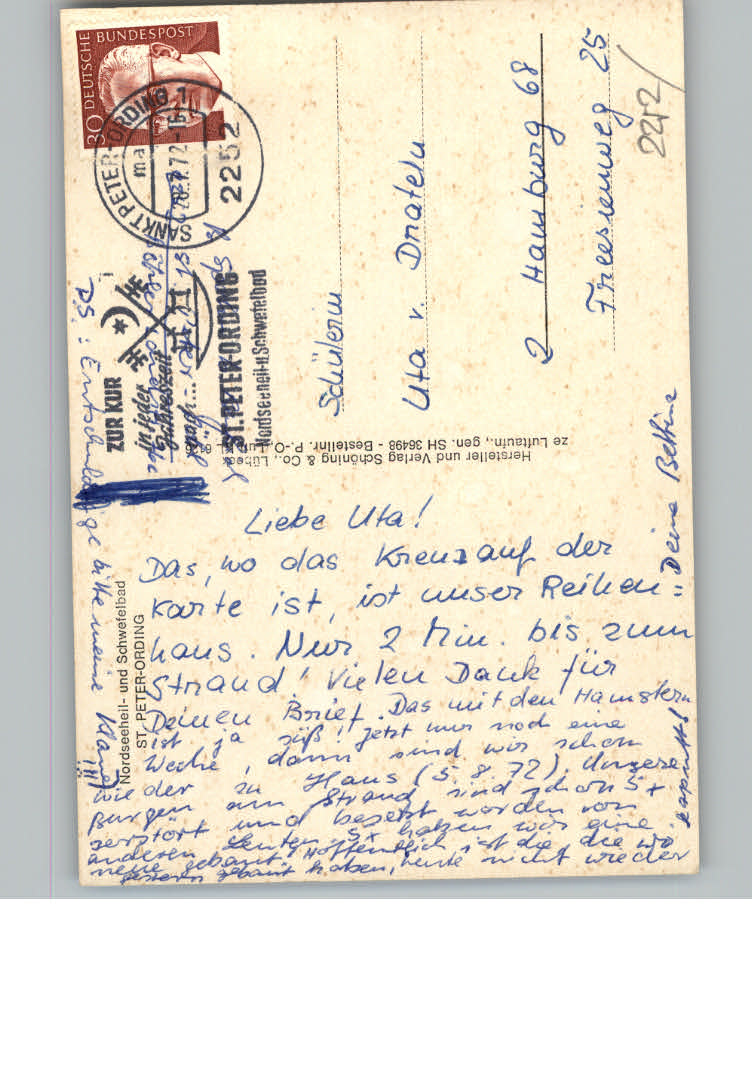 30 DEUTSCHE BUNDESPOST
SANKT PETER-ORDING 1
2252
ZUR KUR
in jeder
Jahreszeit
nach...
ST. PETER-ORDING
Nordseeheil-u. Schwefelbad
Schülerin
Uta v.
2 Hamburg 68
25
Hersteller und Verlag Schöning & Co., Lübeck
ze Luftaufn., gen. SH 36498 - Bestellnr. P.-O.
Nordseeheil- und Schwefelbad
ST. PETER-ORDING
Liebe Uta!
Das, wo das Kreuz auf der
Karte ist, ist unser Reihen=
haus. Nur 2 Min. bis zum
Strand! Vielen Dank für
Deinen Brief. Das mit den Hamstern
ist ja süß! Jetzt nur noch eine
Woche, dann sind wir schon
wieder zu Haus (5.8.72). Unsere
Burgen am Strand sind schon 5x
zerstört und besetzt worden von
anderen Leuten. 5x haben wir eine
neue gebaut! Hoffentlich ist die, die wir
gestern gebaut haben, heute nicht wieder
kaputt!
Deine Bettina
PS.: Entschuldige bitte meine Klaue!!!